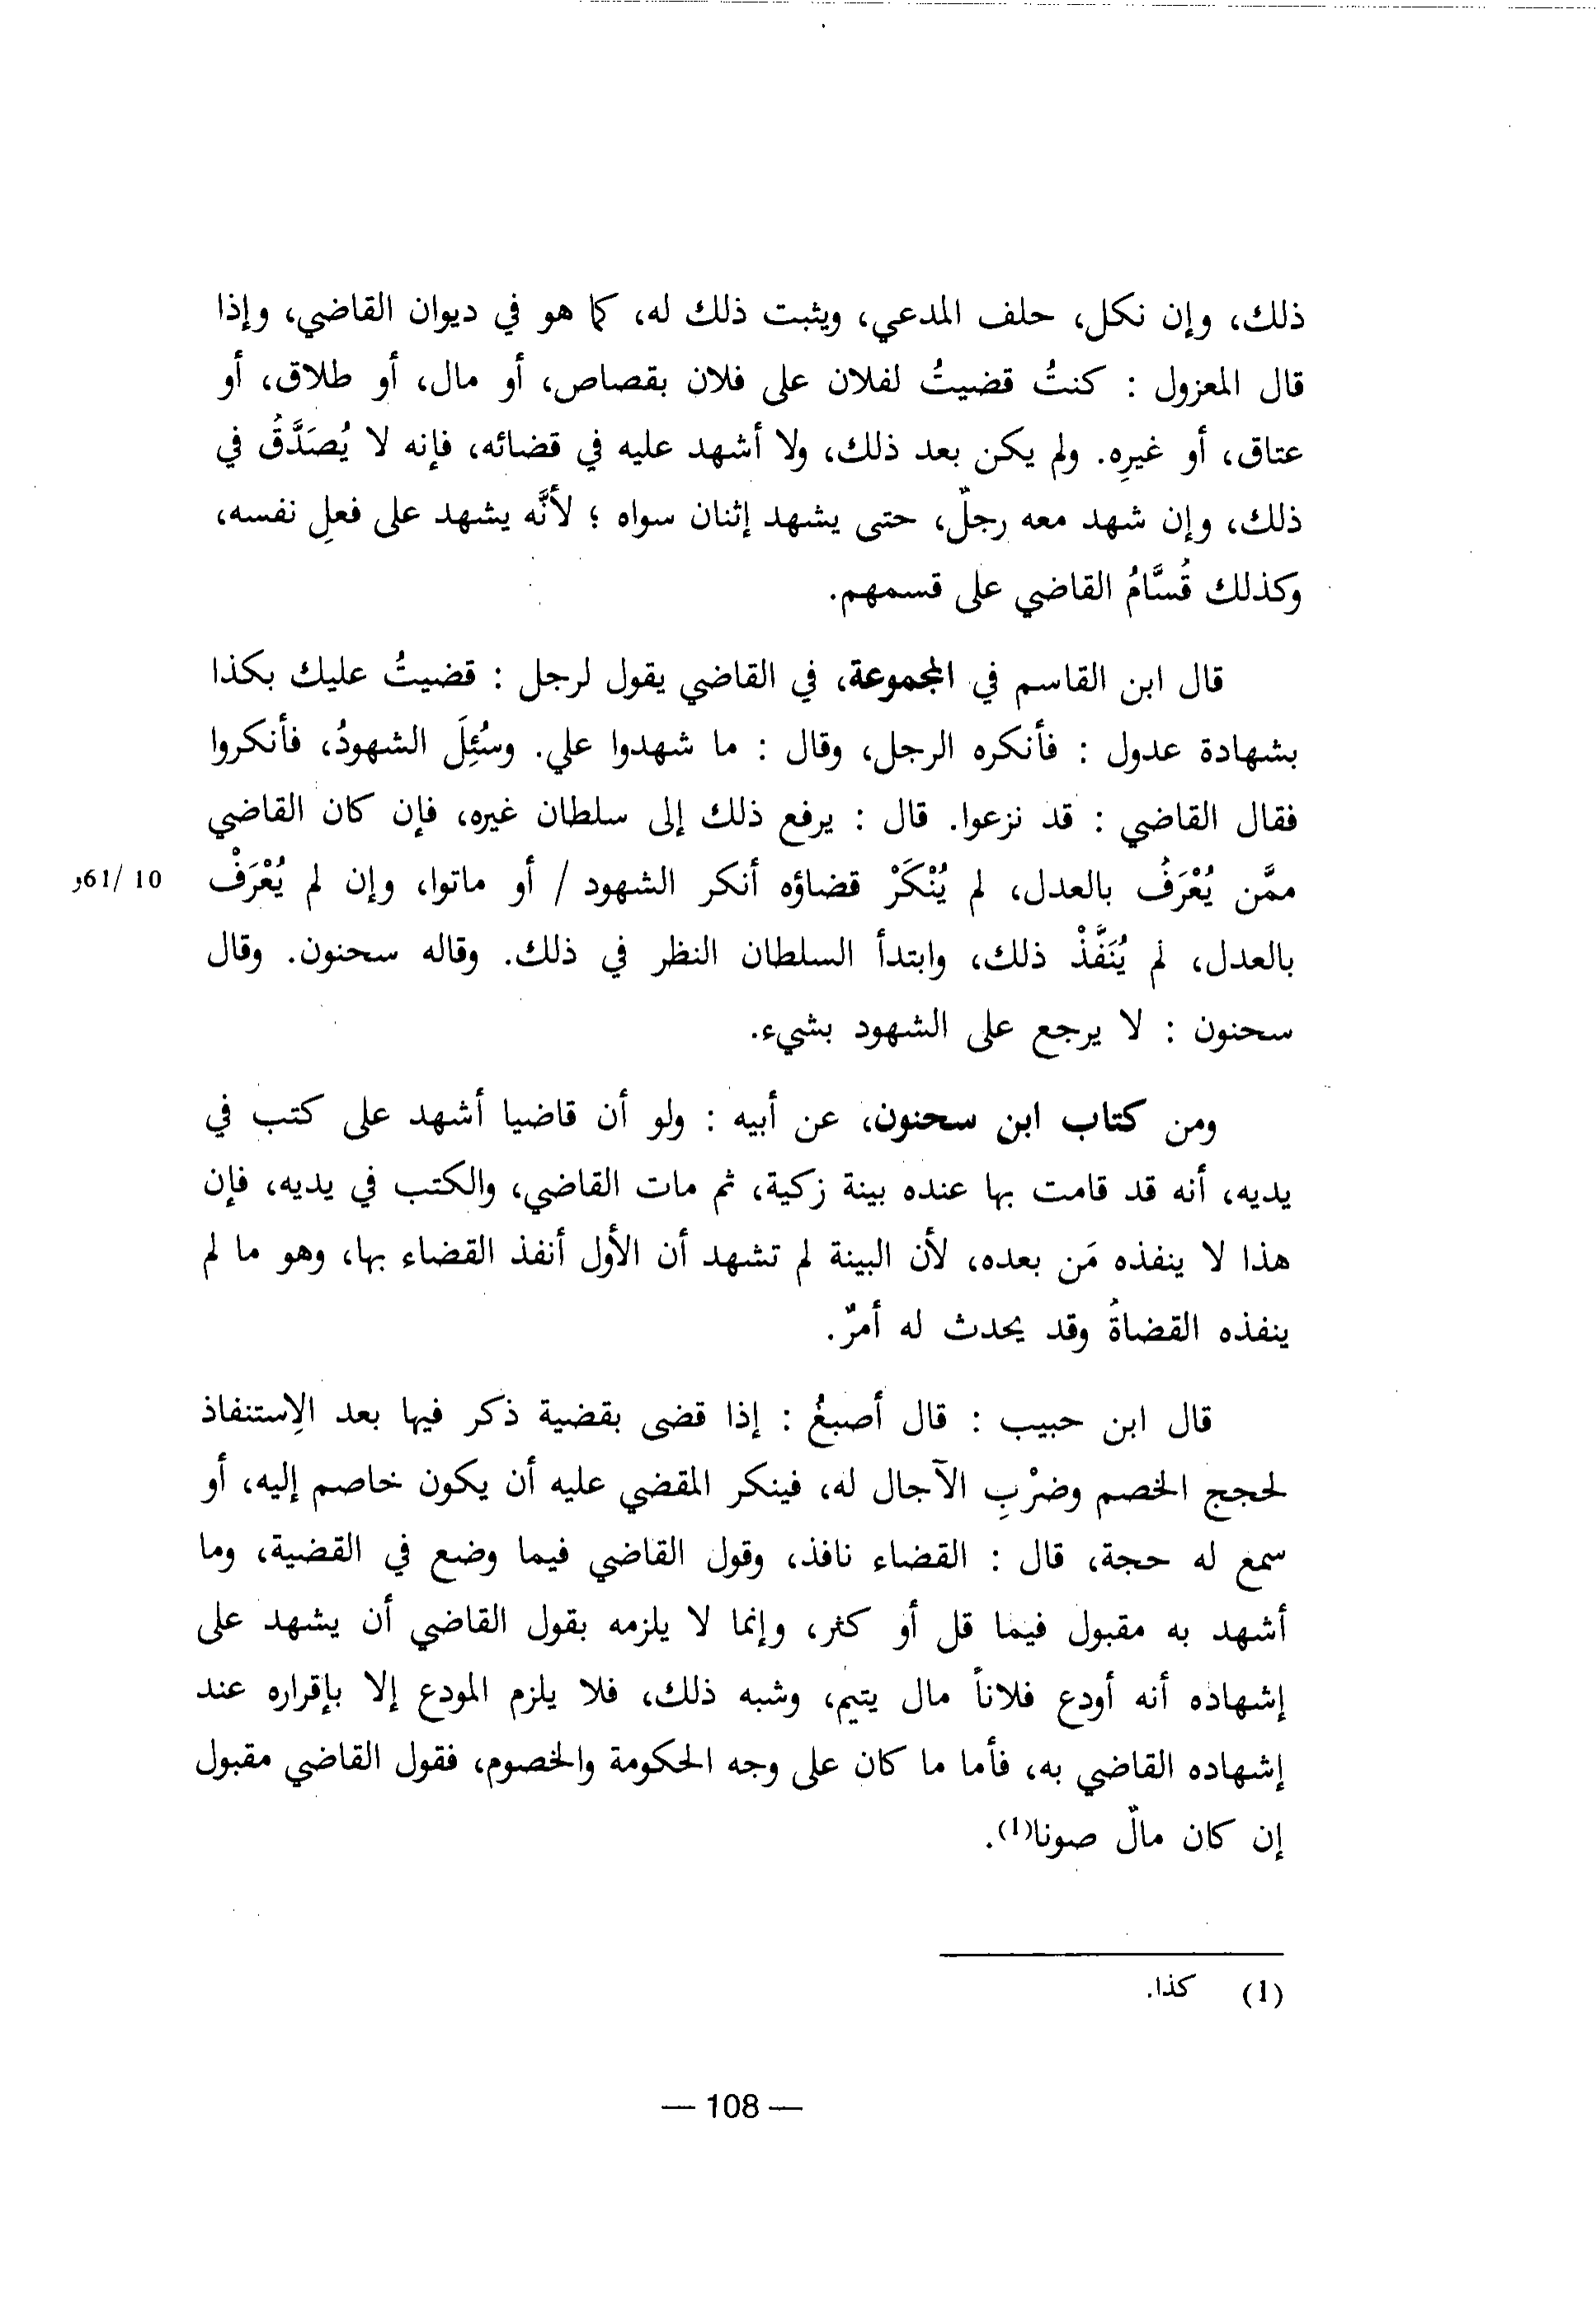 ذلك، وإن نكل، حلف المدعي، ويثبت ذلك له، كما هو في ديوان القاضي، وإذا
قال المعزول : كنتُ قضيتُ لفلان على فلان بقصاص، أو مال، أو طلاق، أو
عتاق، أو غيرِه. ولم يكن بعد ذلك، ولا أشهد عليه في قضائه، فإنه لا يُصَدَّقُ في
ذلك، وإن شهد معه رجلٌ، حتى يشهد إثنان سواه ؛ لأنَّه يشهد على فعلِ نفسه،
وكذلك قُسَّامُ القاضي على قسمهم.
قال ابن القاسم في المجموعة، في القاضي يقول لرجل : قضيتُ عليك بكذا
بشهادة عدول : فأنكره الرجل، وقال : ما شهدوا علي. وسُئِلَ الشهودُ، فأنكروا
فقال القاضي : قد نزعوا. قال : يرفع ذلك إلى سلطان غيره، فإن كان القاضي
ممَّن يُعْرَفُ بالعدل، لم يُنْكَرْ قضاؤه أنكر الشهود / أو ماتوا، وإن لم يُعْرَفْ
10 /61و
بالعدل، لم يُنَفَّذْ ذلك، وابتدأ السلطان النظر في ذلك. وقاله سحنون. وقال
سحنون : لا يرجع على الشهود بشيء.
ومن كتاب ابن سحنون، عن أبيه : ولو أن قاضيا أشهد على كتب في
يديه، أنه قد قامت بها عنده بينة زكية، ثم مات القاضي، والكتب في يديه، فإن
هذا لا ينفذه مَن بعده، لأن البينة لم تشهد أن الأول أنفذ القضاء بها، وهو ما لم
ينفذه القضاةُ وقد يحدث له أمرٌ.
قال ابن حبيب : قال أصبغُ : إذا قضى بقضية ذكر فيها بعد الإستنفاذ
لحجج الخصم وضرْبِ الآجال له، فينكر المقضي عليه أن يكون خاصم إليه، أو
سمع له حجة، قال : القضاء نافذ، وقول القاضي فيما وضع في القضية، وما
أشهد به مقبول فيما قل أو كثر، وإنما لا يلزمه بقول القاضي أن يشهد على
إشهاده أنه أودع فلاناً مال يتيم، وشبه ذلك، فلا يلزم المودع إلا بإقراره عند
إشهاده القاضي به، فأما ما كان على وجه الحكومة والخصوم، فقول القاضي مقبول
إن كان مالٌ صونا(1).
(1) كذا.
— 108 —